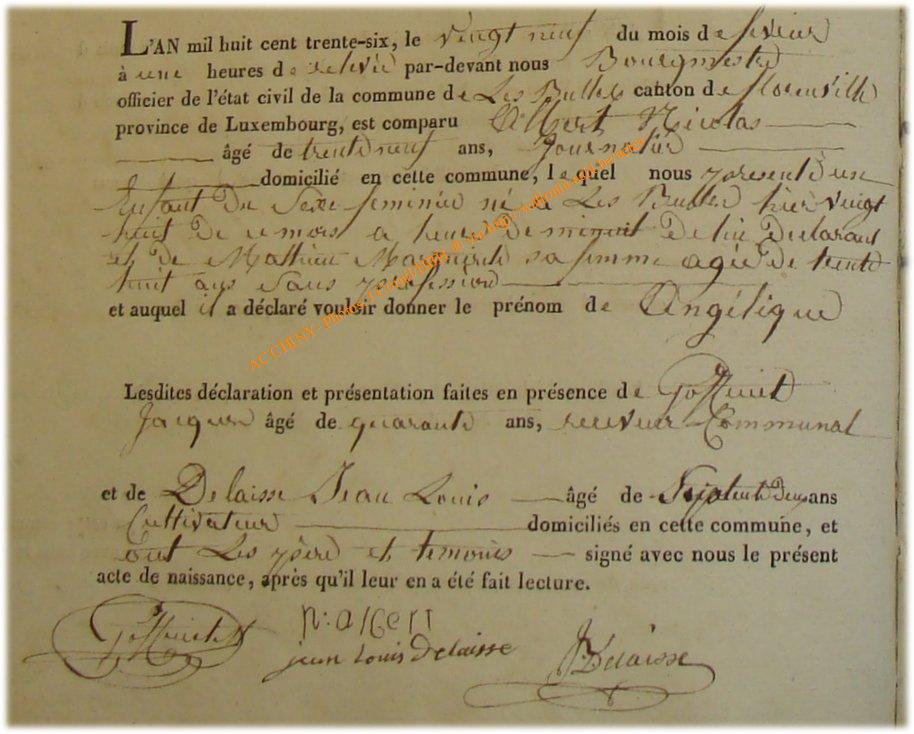 L'AN mil huit cent trente-six, le vingt neuf du mois de fevrier
à une heures de relevée par-devant nous Bourgmestre
officier de l'état civil de la commune de Les Bulles canton de florenville
province de Luxembourg, est comparu Albert Nicolas
âgé de trente neuf ans, Journalier
domicilié en cette commune, lequel nous presente un
Enfant du Sexe feminin né a Les Bulles hier vingt
huit de ce mois a heure de minuit de lui declarant
et de Mathieu Marguerite sa femme agée de trente
huit ans sans profession
et auquel il a déclaré vouloir donner le prénom de Angélique
Lesdites déclaration et présentation faites en présence de Goffinet
Jacques âgé de quarante ans, receveur Communal
et de Delaisse Jean Louis âgé de ans
Cultivateur domiciliés en cette commune, et
ont Les père et temoins signé avec nous le présent
acte de naissance, après qu'il leur en a été fait lecture.
Goffinet
n: albert
jean louis Delaisse
Delaisse